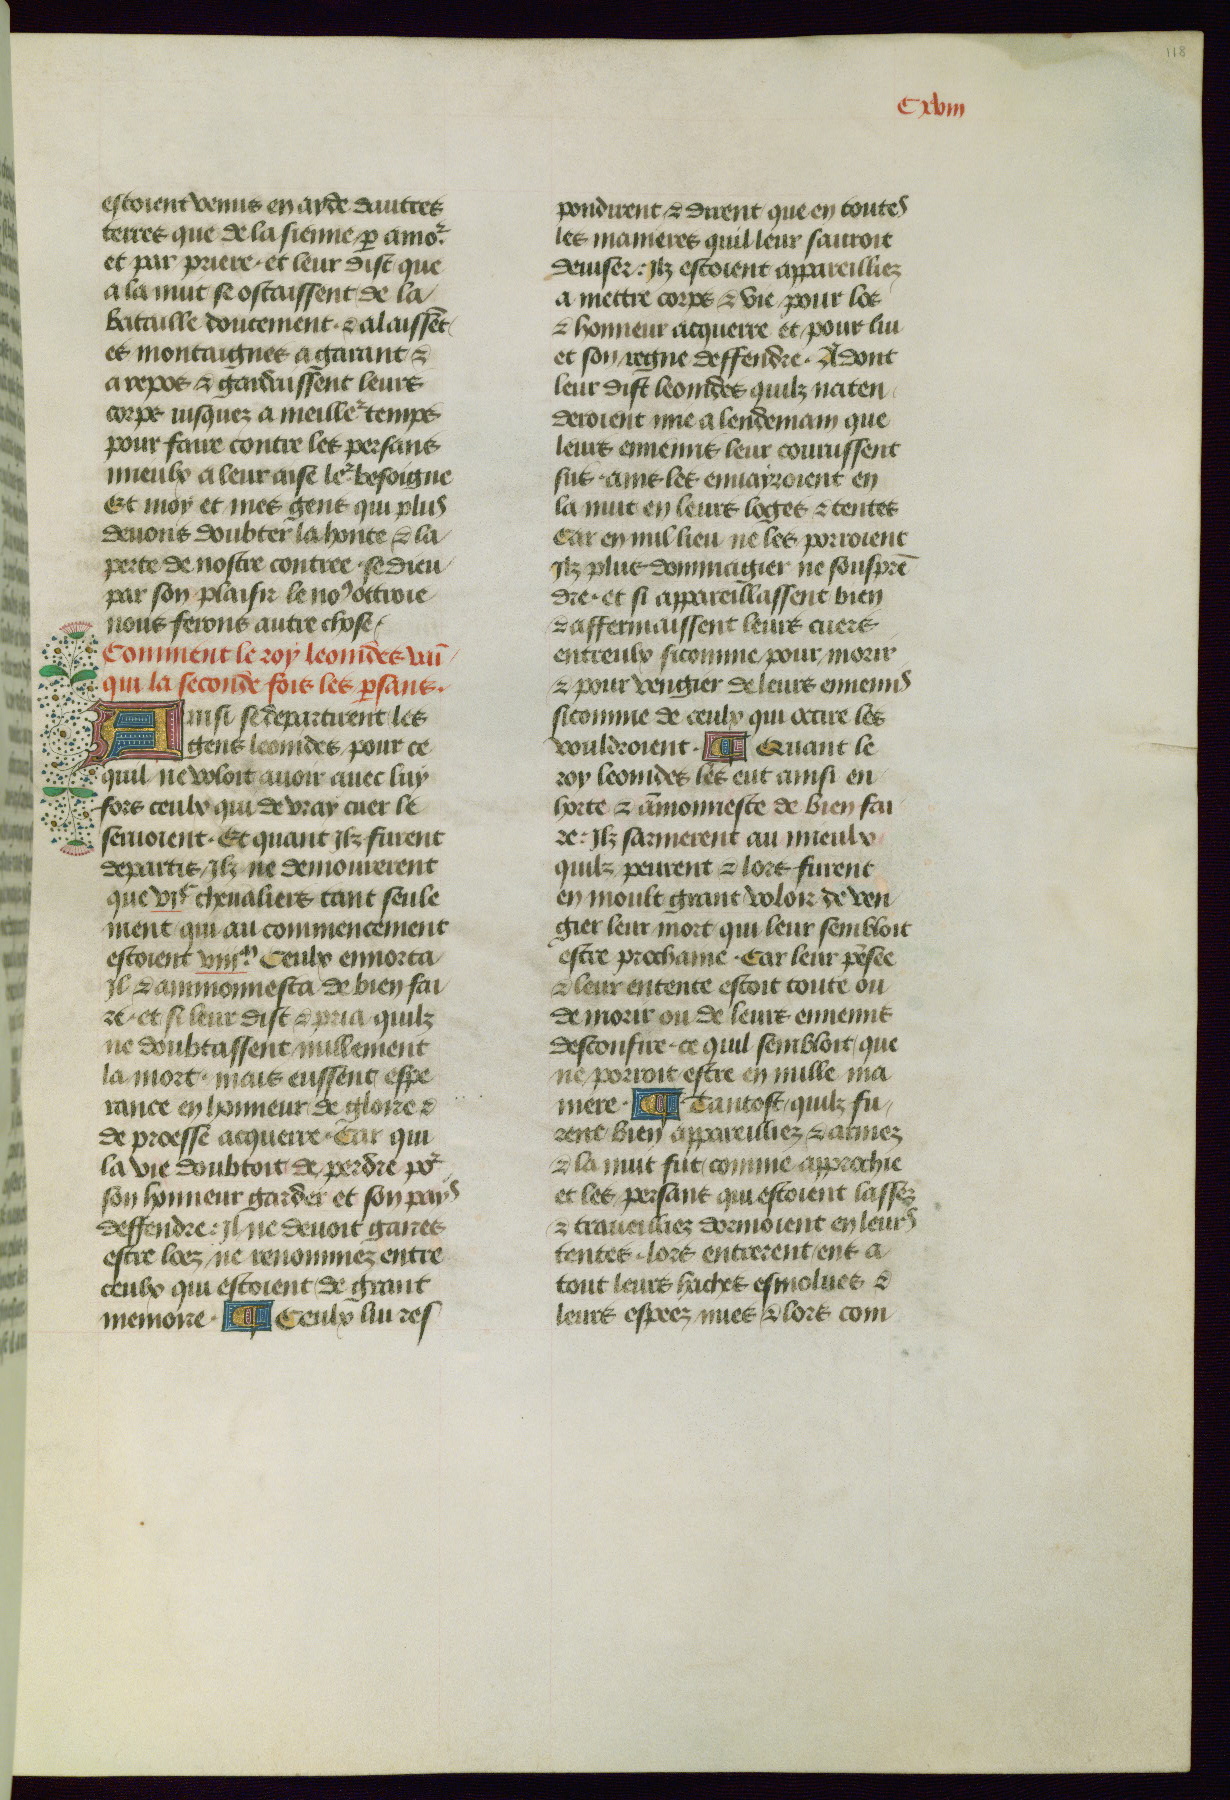 118
Cxviii
estoient venus en ayde dautres
terres que de la sienne p̲ amor̉
et par priere · et leur dist que
a la nuit se ostaissent de la
bataille doucement · ⁊ alaissēt
es montaignes a garant ⁊
a repos ⁊ gardaissent leurs
corps iusquez a meille᷑ temps
pour faire contre les persans
mieulx a leur aise le᷑ besoigne
Et moy et mes gens qui plus
devons doubter la honte ⁊ la
perte de nostre contree · se dieu
par son plaisir le noꝰ ottroie
nous ferons autre chose /
Comment le roy leonides vaī
qui la seconde fois les ꝑsans ·
Ainsi se departirent les
gens leonides pour ce
quil ne voloit avoir avec luy
fors ceulx qui de vray cuer le
servoient · Et quant Ilz furent
departis / Ilz ne demourerent
que vjᶜ chevaliers tant seule
ment qui au commencement
estoient viijᵐ Ceulx enhorta
Il ⁊ ammonnesta de bien fai
re · et si leur dist ⁊ pria quilz
ne doubtassent nullement
la mort · mais eussent espe
rance en honneur de gloire ⁊
de proesse acquerre · Car qui
la vie doubtoit de perdre po᷑
son honneur garder et son pays
deffendre : Il ne devoit gaires
estre loez ne renommez entre
ceulx qui estoient de grant
memoire · ¶ Ceulx lui res
pondirent ⁊ dirent que en toutes
les manieres quil leur sauroit
deviser : Ilz estoient appareilliez
a mettre corps ⁊ vie pour los
⁊ honneur acquerre et pour lui
et son regne deffendre · Adont
leur dist leonides quilz naten
deroient mie a lendemain que
leurs ennemis leur courussent
sus · ains les envayroient en
la nuit en leurs loges ⁊ tentes
Car en nul lieu ne les porroient
Ilz plus dommagier ne sousprē
dre · et si appareillassent bien
⁊ affermaissent leurs cuers
entreulx sicomme pour morir
⁊ pour vengier de leurs ennemis
sicomme de ceulx qui occire les
vouldroient · ¶ Quant le
roy leonides les eut ainsi en
horte ⁊ āmonneste de bien fai
re : Ilz sarmerent au mieulx
quilz peurent ⁊ lors furent
en moult grant voloir de ven
gier leur mort qui leur sembloit
estre prochaine · Car leur pēsee
⁊ leur entente estoit toute ou
de morir ou de leurs ennemis
desconfire · ce quil sembloit que
ne porroit estre en nulle ma
niere · ¶ Tantost quilz fu
rent bien appareilliez ⁊ armez
⁊ la nuit fut comme approchie
et les persans qui estoient lassez
⁊ traveilliez dormoient en leurs
tentes · lors entrerent ens a
tout leurs haches esmolues ⁊
leurs espeez nues ⁊ lors com